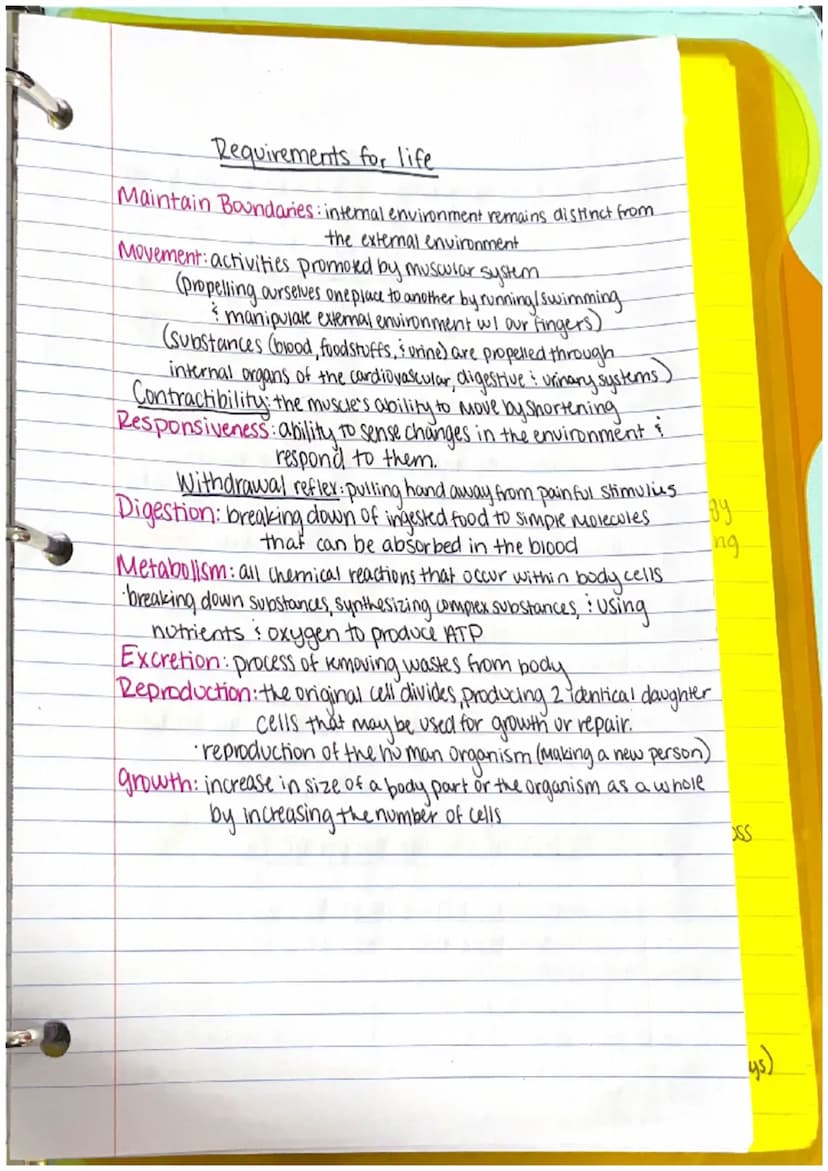 Requirements for life
Maintain Boundaries: internal environment remains distinct from
the external environment
Movement: activities promoted by muscular system
(propelling ourselves one place to another by running/swimming
& manipulate external environment w/ our fingers)
(substances (blood, foodstuffs, & urine) are propelled through
internal organs of the cardiovascular, digestive & urinary systems)
Contractibility: the muscle's ability to move by shortening
Responsiveness: ability to sense changes in the environment &
respond to them.
Withdrawal reflex: pulling hand away from painful stimulus
Digestion: breaking down of ingested food to simple molecules
that can be absorbed in the blood
Metabolism: all chemical reactions that occur within body cells
·breaking down substances, synthesizing complex substances, & using
nutrients & oxygen to produce ATP
Excretion: process of removing wastes from body
Reproduction: the original cell divides, producing 2 identical daughter
cells that may be used for growth or repair.
·reproduction of the human organism (making a new person)
growth: increase in size of a body part or the organism as a whole
by increasing the number of cells
ng
oss
ys)